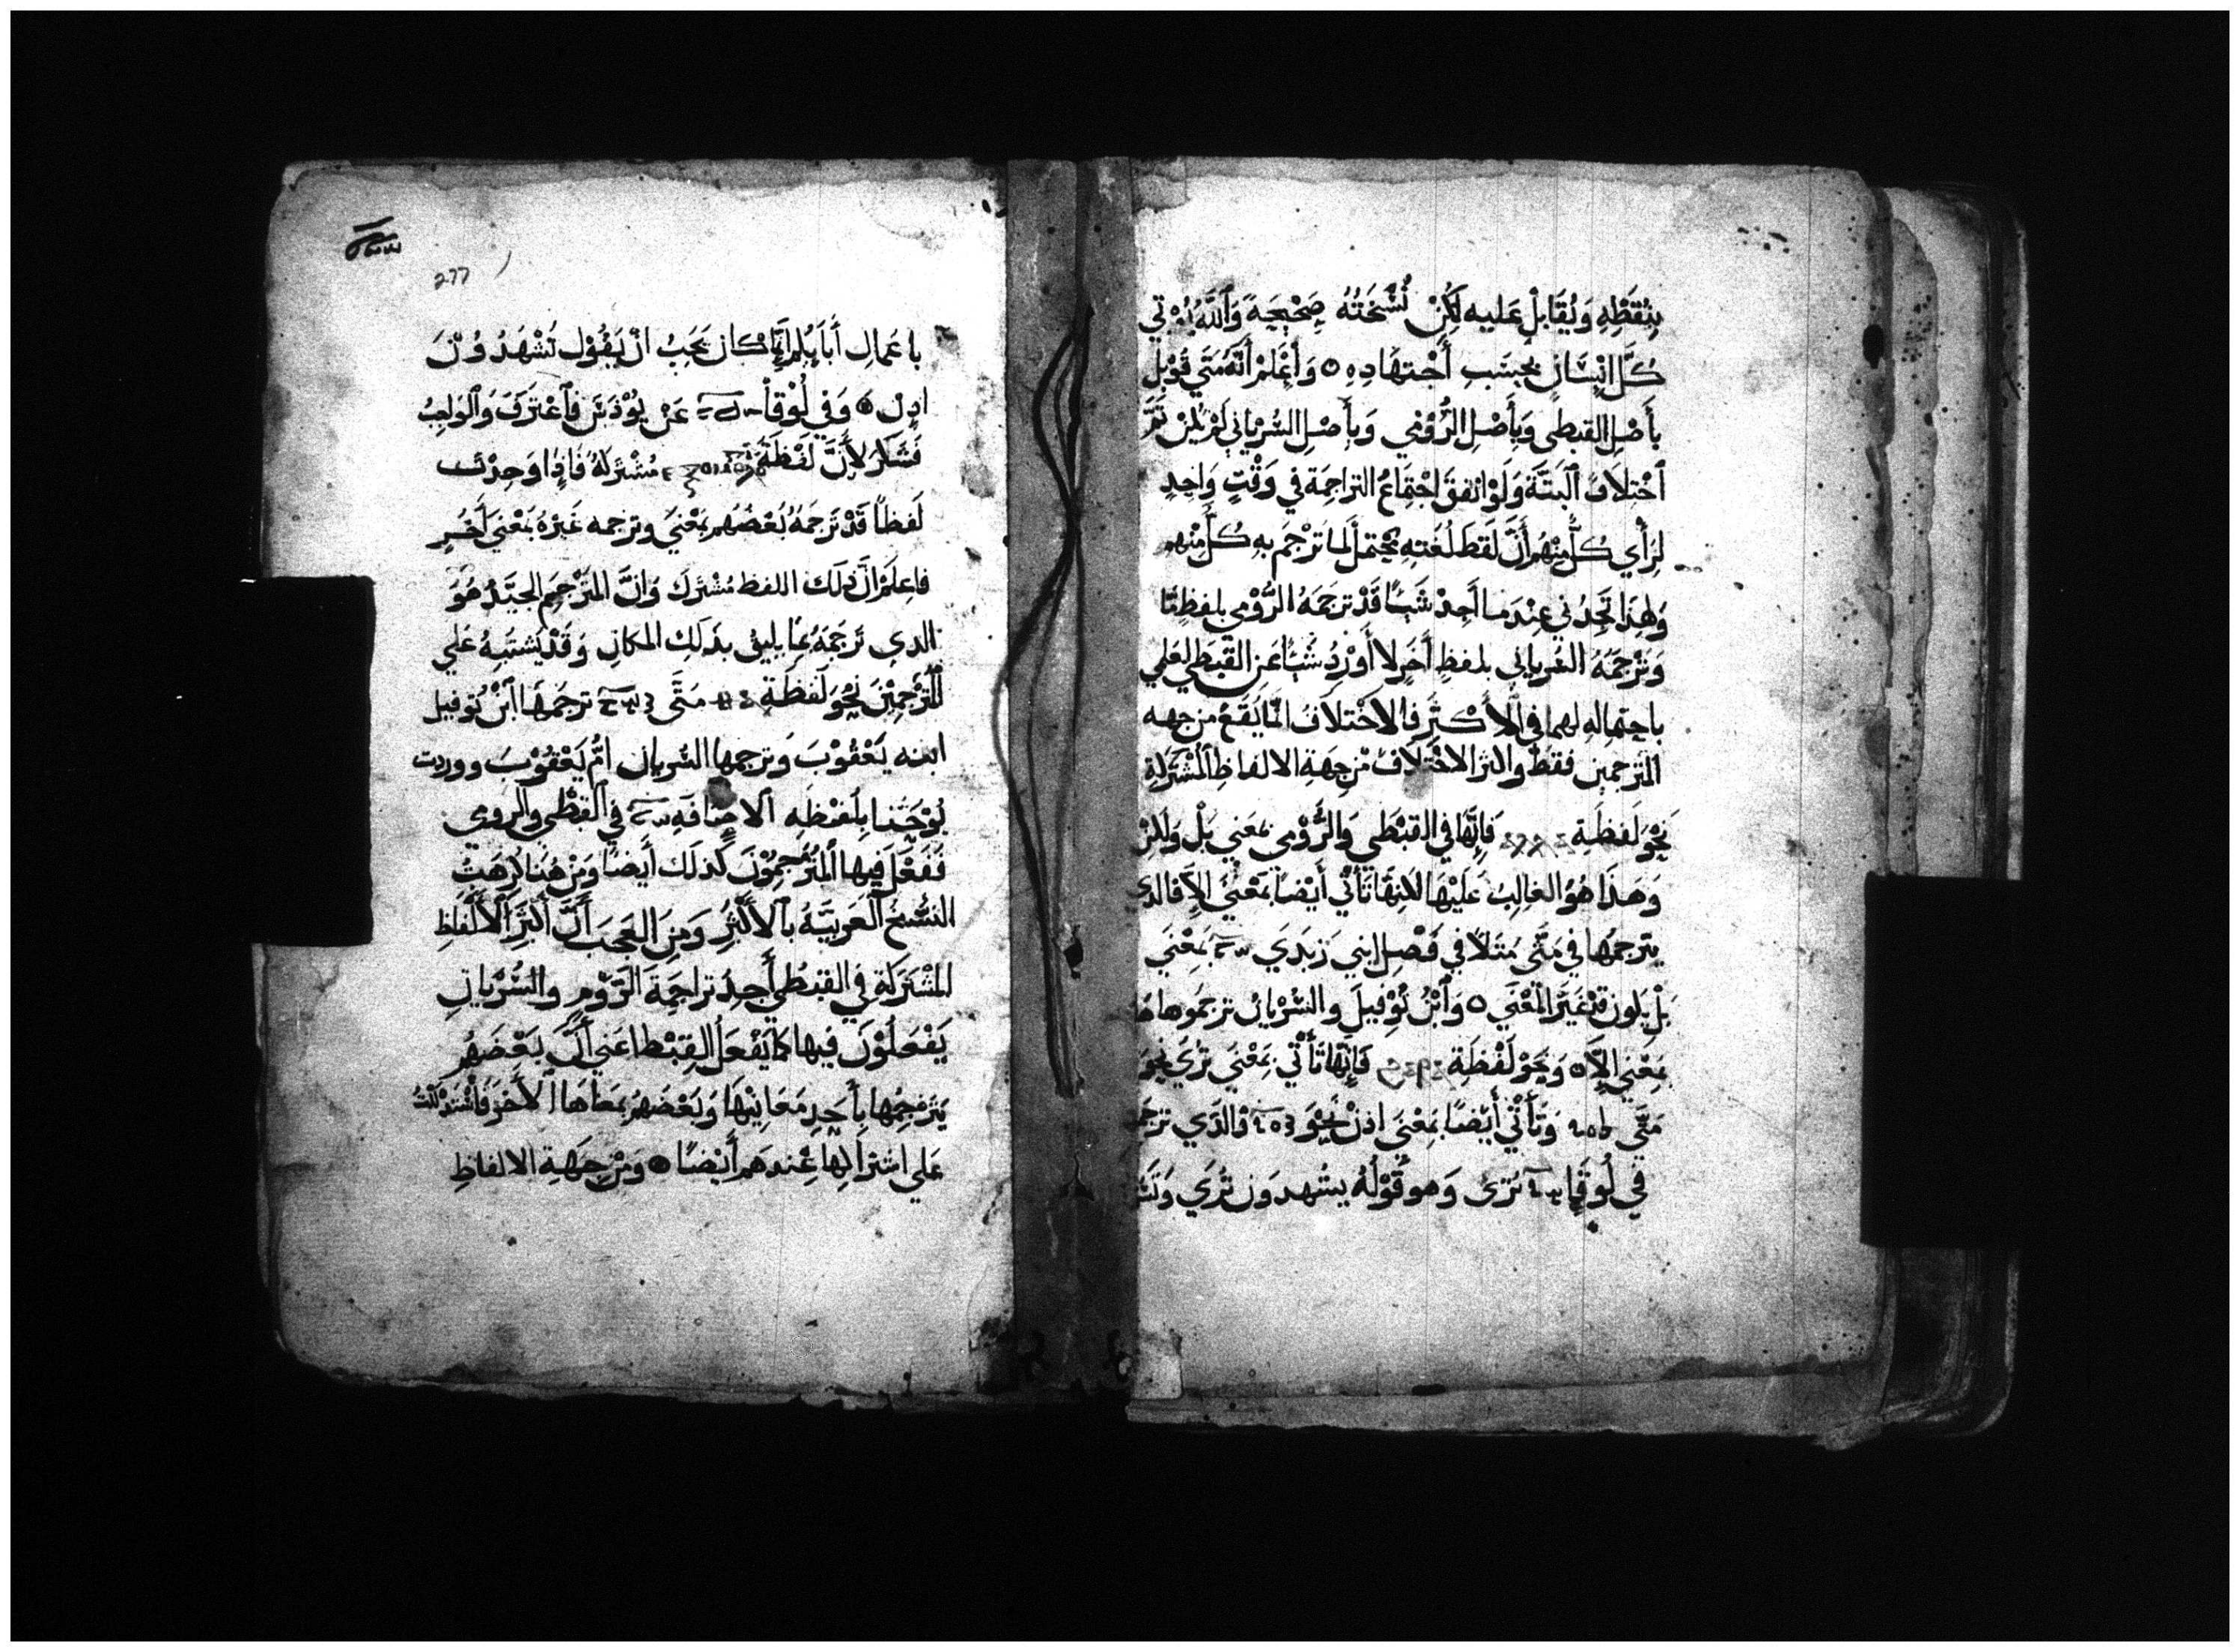 بنقطه ويقابل عليه لتكن نسخته صحيحة والله يؤتي
كل انسان بحسب أجتهاده ٥ وأعلم أنه متي قوبل
بأصل القبطي وبأصل الرومي وبأصل السرياني لم يكن ثم
أختلاف البتة ولو اتفق اجتماع التراجمة في وقت واحد
لرأي كل منهم أن لفظ لغته يحتمل لما ترجم به كل منهم
ولهذا تجدني عندما أجد شيا قد ترجمه الرومي بلفظ تا
وترجمه السرياني بلفظ أخر لا أورد شيا عن القبطي لعلمي
باحتماله لهما في الأكثر فالاختلاف انما يقع من جهه
المترجمين فقط واكثر الاختلاف من جهة الالفاظ المشتركة
نحو لفظة فانها في القبطي والرومي بمعني بل ولكن
وهذا هو الغالب عليها لكنها تأتي أيضا بمعني الا فالدي
يترجمها في متى مثلا في فصل ابني زبدي بمعنى
بل يكون قد غير المعنى ٥ وأبن توفيل والسريان ترجموها
بمعني الا ٥ ونحو لفظة فانها تأتي بمعنى تري نحو
متي وتأتي أيضا بمعني اذن نحو والدي ترجم
في لوقا تري وهو قوله يشهدون تري
277
باعمال أباىكم انما كان يجب ان يقول تشهدون
اذن ٥ وفي لوقا عن يوذس فاعترف والواجب
فشكر لأن لفظة مشتركة فاذا وجدت
لفظا قد ترجمه بعضهم بمعنى وترجمه غيره بمعني أخر
فاعلم ان ذلك اللفظ مشترك وان المترجم الجيد هو
الدي ترجمه بما يليق بذلك المكان وقد يشتبه علي
المترجمين نحو لفظة متى ترجمها ابن توفيل
ابنه يعقوب وترجمها السريان ام يعقوب ووردت
يوحنا بلفظه الاضافه في القبطي والرومي
ففعل فيها المترجمون كذلك أيضا ومن هنا كرهت
النسخ العربيه بالأكثر ومن العجب أن أكثر الألفاظ
المشتركة في القبطي أجد تراجمة الروم والسريان
يفعلون فيها كما يفعل القبط اعني أن بعضهم
يترجمها بأحد معانيها وبعضهم بمعناها الأخر فأستدللت
علي اشتراكها عندهم أيضا ٥ ومن جهة الالفاظ